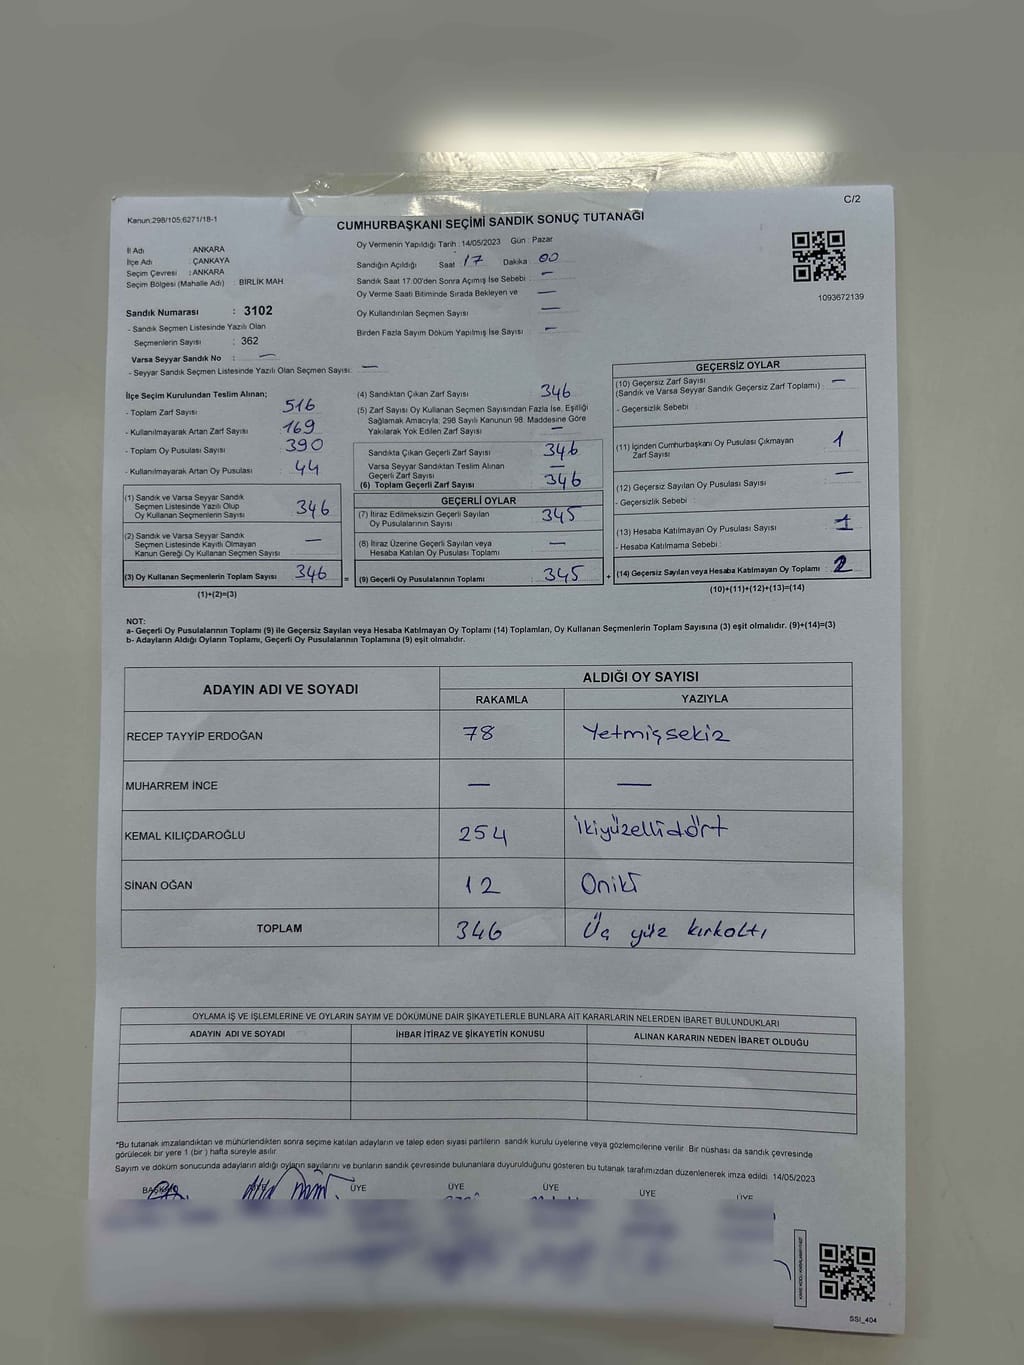 C/2
Kanun:298/105;6271/18-1
CUMHURBAŞKANI SEÇİMİ SANDIK SONUÇ TUTANAĞI
İl Adı : ANKARA
İlçe Adı : ÇANKAYA
Seçim Çevresi : ANKARA
Seçim Bölgesi (Mahalle Adı) : BİRLİK MAH
Oy Vermenin Yapıldığı Tarih : 14/05/2023 Gün : Pazar
Sandığın Açıldığı Saat 17 Dakika 00
Sandık Saat 17:00'den Sonra Açımış İse Sebebi : —
Oy Verme Saati Bitiminde Sırada Bekleyen ve —
Oy Kullandırılan Seçmen Sayısı —
Birden Fazla Sayım Döküm Yapılmış İse Sayısı : —
1093672139
Sandık Numarası : 3102
- Sandık Seçmen Listesinde Yazılı Olan
Seçmenlerin Sayısı : 362
Varsa Seyyar Sandık No : —
- Seyyar Sandık Seçmen Listesinde Yazılı Olan Seçmen Sayısı: —
İlçe Seçim Kurulundan Teslim Alınan;
- Toplam Zarf Sayısı 516
- Kullanılmayarak Artan Zarf Sayısı : 169
- Toplam Oy Pusulası Sayısı : 390
- Kullanılmayarak Artan Oy Pusulası : 44
(1) Sandık ve Varsa Seyyar Sandık
Seçmen Listesinde Yazılı Olup
Oy Kullanan Seçmenlerin Sayısı 346
(2) Sandık ve Varsa Seyyar Sandık
Seçmen Listesinde Kayıtlı Olmayan
Kanun Gereği Oy Kullanan Seçmen Sayısı —
(3) Oy Kullanan Seçmenlerin Toplam Sayısı 346 =
(1)+(2)=(3)
(4) Sandıktan Çıkan Zarf Sayısı 346
(5) Zarf Sayısı Oy Kullanan Seçmen Sayısından Fazla İse, Eşitliği
Sağlamak Amacıyla; 298 Sayılı Kanunun 98. Maddesine Göre
Yakılarak Yok Edilen Zarf Sayısı —
Sandıkta Çıkan Geçerli Zarf Sayısı 346
Varsa Seyyar Sandıktan Teslim Alınan
Geçerli Zarf Sayısı —
(6) Toplam Geçerli Zarf Sayısı 346
GEÇERLİ OYLAR
(7) İtiraz Edilmeksizin Geçerli Sayılan
Oy Pusulalarının Sayısı 345
(8) İtiraz Üzerine Geçerli Sayılan veya
Hesaba Katılan Oy Pusulası Toplamı —
(9) Geçerli Oy Pusulalarının Toplamı 345 +
GEÇERSİZ OYLAR
(10) Geçersiz Zarf Sayısı
(Sandık ve Varsa Seyyar Sandık Geçersiz Zarf Toplamı) : —
- Geçersizlik Sebebi :
(11) İçinden Cumhurbaşkanı Oy Pusulası Çıkmayan
Zarf Sayısı 1
(12) Geçersiz Sayılan Oy Pusulası Sayısı —
- Geçersizlik Sebebi :
(13) Hesaba Katılmayan Oy Pusulası Sayısı 1
- Hesaba Katılmama Sebebi :
(14) Geçersiz Sayılan veya Hesaba Katılmayan Oy Toplamı : 2
(10)+(11)+(12)+(13)=(14)
NOT:
a- Geçerli Oy Pusulalarının Toplamı (9) ile Geçersiz Sayılan veya Hesaba Katılmayan Oy Toplamı (14) Toplamları, Oy Kullanan Seçmenlerin Toplam Sayısına (3) eşit olmalıdır. (9)+(14)=(3)
b- Adayların Aldığı Oyların Toplamı, Geçerli Oy Pusulalarının Toplamına (9) eşit olmalıdır.
ADAYIN ADI VE SOYADI ALDIĞI OY SAYISI
RAKAMLA YAZIYLA
RECEP TAYYİP ERDOĞAN 78 Yetmişsekiz
MUHARREM İNCE — —
KEMAL KILIÇDAROĞLU 254 ikiyüzellidört
SİNAN OĞAN 12 Oniki
TOPLAM 346 Üç yüz kırkaltı
OYLAMA İŞ VE İŞLEMLERİNE VE OYLARIN SAYIM VE DÖKÜMÜNE DAİR ŞİKAYETLERLE BUNLARA AİT KARARLARIN NELERDEN İBARET BULUNDUKLARI
ADAYIN ADI VE SOYADI İHBAR İTİRAZ VE ŞİKAYETİN KONUSU ALINAN KARARIN NEDEN İBARET OLDUĞU
*Bu tutanak imzalandıktan ve mühürlendikten sonra seçime katılan adayların ve talep eden siyasi partilerin sandık kurulu üyelerine veya gözlemcilerine verilir. Bir nüshası da sandık çevresinde
görülecek bir yere 1 (bir ) hafta süreyle asılır.
Sayım ve döküm sonucunda adayların aldığı oyların sayılarını ve bunların sandık çevresinde bulunanlara duyurulduğunu gösteren bu tutanak tarafımızdan düzenlenerek imza edildi. 14/05/2023
BAŞKAN ÜYE ÜYE ÜYE ÜYE ÜYE ÜYE
SSI_404